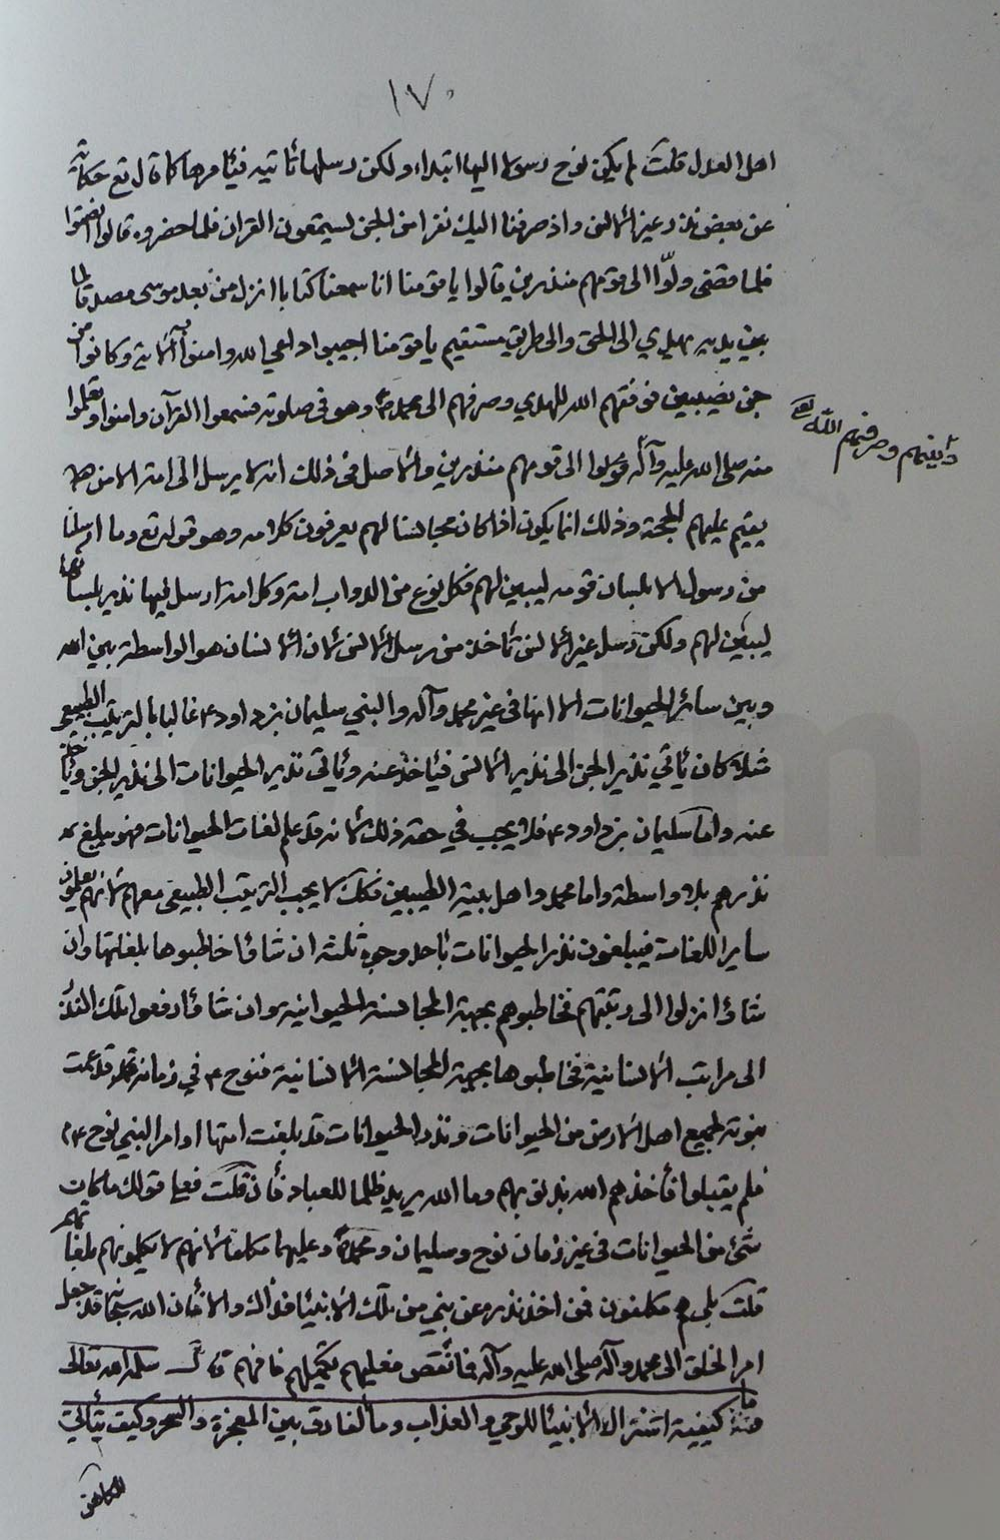 ١٧٠
اهل العدل قلت لم يكن نوح رسولا اليها ابتداء ولكن رسلها تاتيه فيامرها كما قال تع حكاية
عن بعض نذر غير الانس واذ صرفنا اليك نفرا من الجن يستمعون القران فلما حضروه قالوا انصتوا
فلما قضى ولّوا الى قومهم منذرين قالوا يا قومنا انا سمعنا كتابا انزل من بعد موسى مصدقا لما
بين يديه يهدي الى الحق والى طريق مستقيم يا قومنا اجيبوا داعي الله وامنوا به الاية وكانوا من
جن نصيبين فوفقهم الله للهدي وصرفهم الى محمد ص وهو في صلوته فسمعوا القرآن وامنوا وتعلموا
منه صلى الله عليه وآله وولوا الى قومهم منذرين والاصل في ذلك انه لا يرسل الى امة الا من
يقيم عليهم الحجة وذلك انما يكون اذا كان مجانسا لهم يعرفون كلامه وهو قوله تع وما ارسلنا
من رسول الا بلسان قومه ليبين لهم فكل نوع من الدواب امة وكل امة ارسل اليها نذير بلسانها
ليبين لهم ولكن رسل غير الانس تاخذ من رسل الانس لان الانسان هو الواسطة بين الله
وبين سائر الحيوانات الا انها في غير محمد وآله والنبي سليمان بن داود ع غالبا بالترتيب الطبيعي
مثلا كان ياتي نذير الجن الى نذير الانس فياخذ عنه وياتي نذير الحيوانات الى نذير الجن وياخذ
عنه واما سليمان بن داود ع فلا يجب في حقه ذلك لانه قد علم لغات الحيوانات فهو يبلغ
نذرهم بلا واسطة واما محمد واهل بيته الطيبين فكك لا يجب الترتيب الطبيعي معهم لانهم يعلمون
ساير اللغات فيبلغون نذر الحيوانات باحد وجوه ثلثة ان شاؤا خاطبوها بلغاتها وان
شاؤا نزلوا الى رتبتهم فخاطبوهم بجهة المجانسة الحيوانية وان شاؤا رفعوا تلك النذر
الى مراتب الانسانية فخاطبوها بجهة المجانسة الانسانية فنوح ع في زمانه قد عمت
نبوته لجميع اهل الارض من الحيوانات ونذر الحيوانات قد بلغت امتها اوامر النبي نوح ع
فلم يقبلوا فأخذهم الله بذنوبهم وما الله يريد ظلما للعباد فأن قلت فعلى قولك ما كان
شئ من الحيوانات في غير زمان نوح وسليمان ومحمد ص وعليهما مكلفا لانهم لا يكلمونهم بلغاتهم
قلت بلى هم مكلفون فمن اخذ نذره عن نبي من تلك الانبياء فذاك والا فان الله سبحانه قد جعل
امر الخلق الى محمد وآله صلى الله عليه وآله فما نقص فعليهم تكميلهم فافهم قال سلمه الله تعالى
ومنها كيفية استنزال الانبياء للوحي والعذاب وما الفارق بين المعجزة والسحر وكيف يتأتى
وصرفهم الله
للكاهن